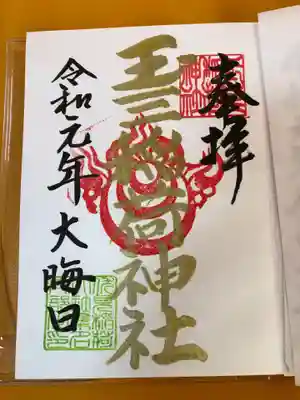 奉拝
王子稲荷神社
令和元年大晦日